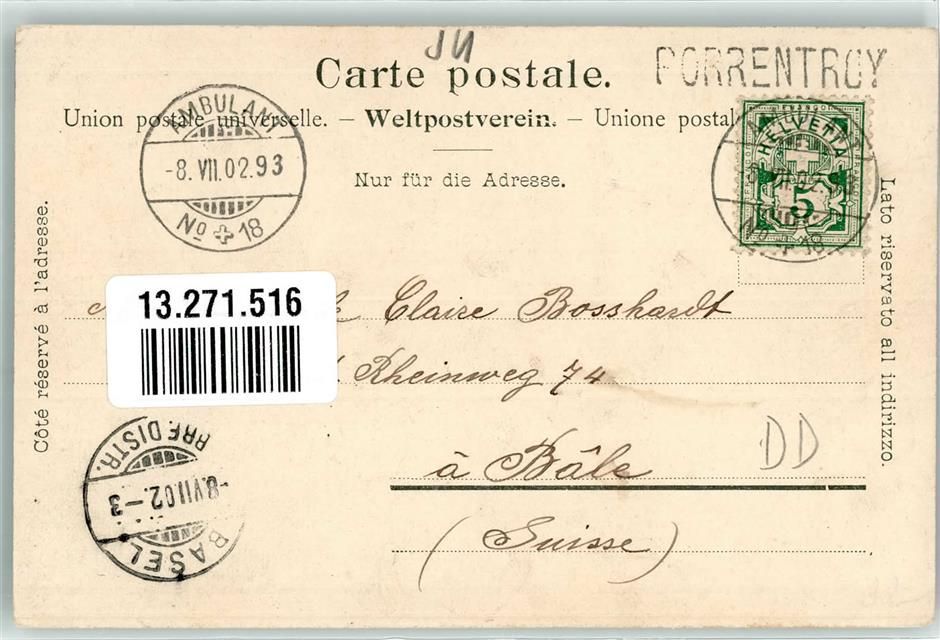 JU
PORRENTRUY
Carte postale.
Union postale universelle. — Weltpostverein. — Unione postal
Nur für die Adresse.
AMBULANT
-8.VII.02.93
No 18
HELVETIA
5
No 18
Côté réservé à l'adresse.
Lato riservato all indirizzo.
13.271.516
Claire Bosshardt
Rheinweg 74
à Bâle
(Suisse)
DD
BRF.DISTR.
-8.VII.02.-3
BASEL